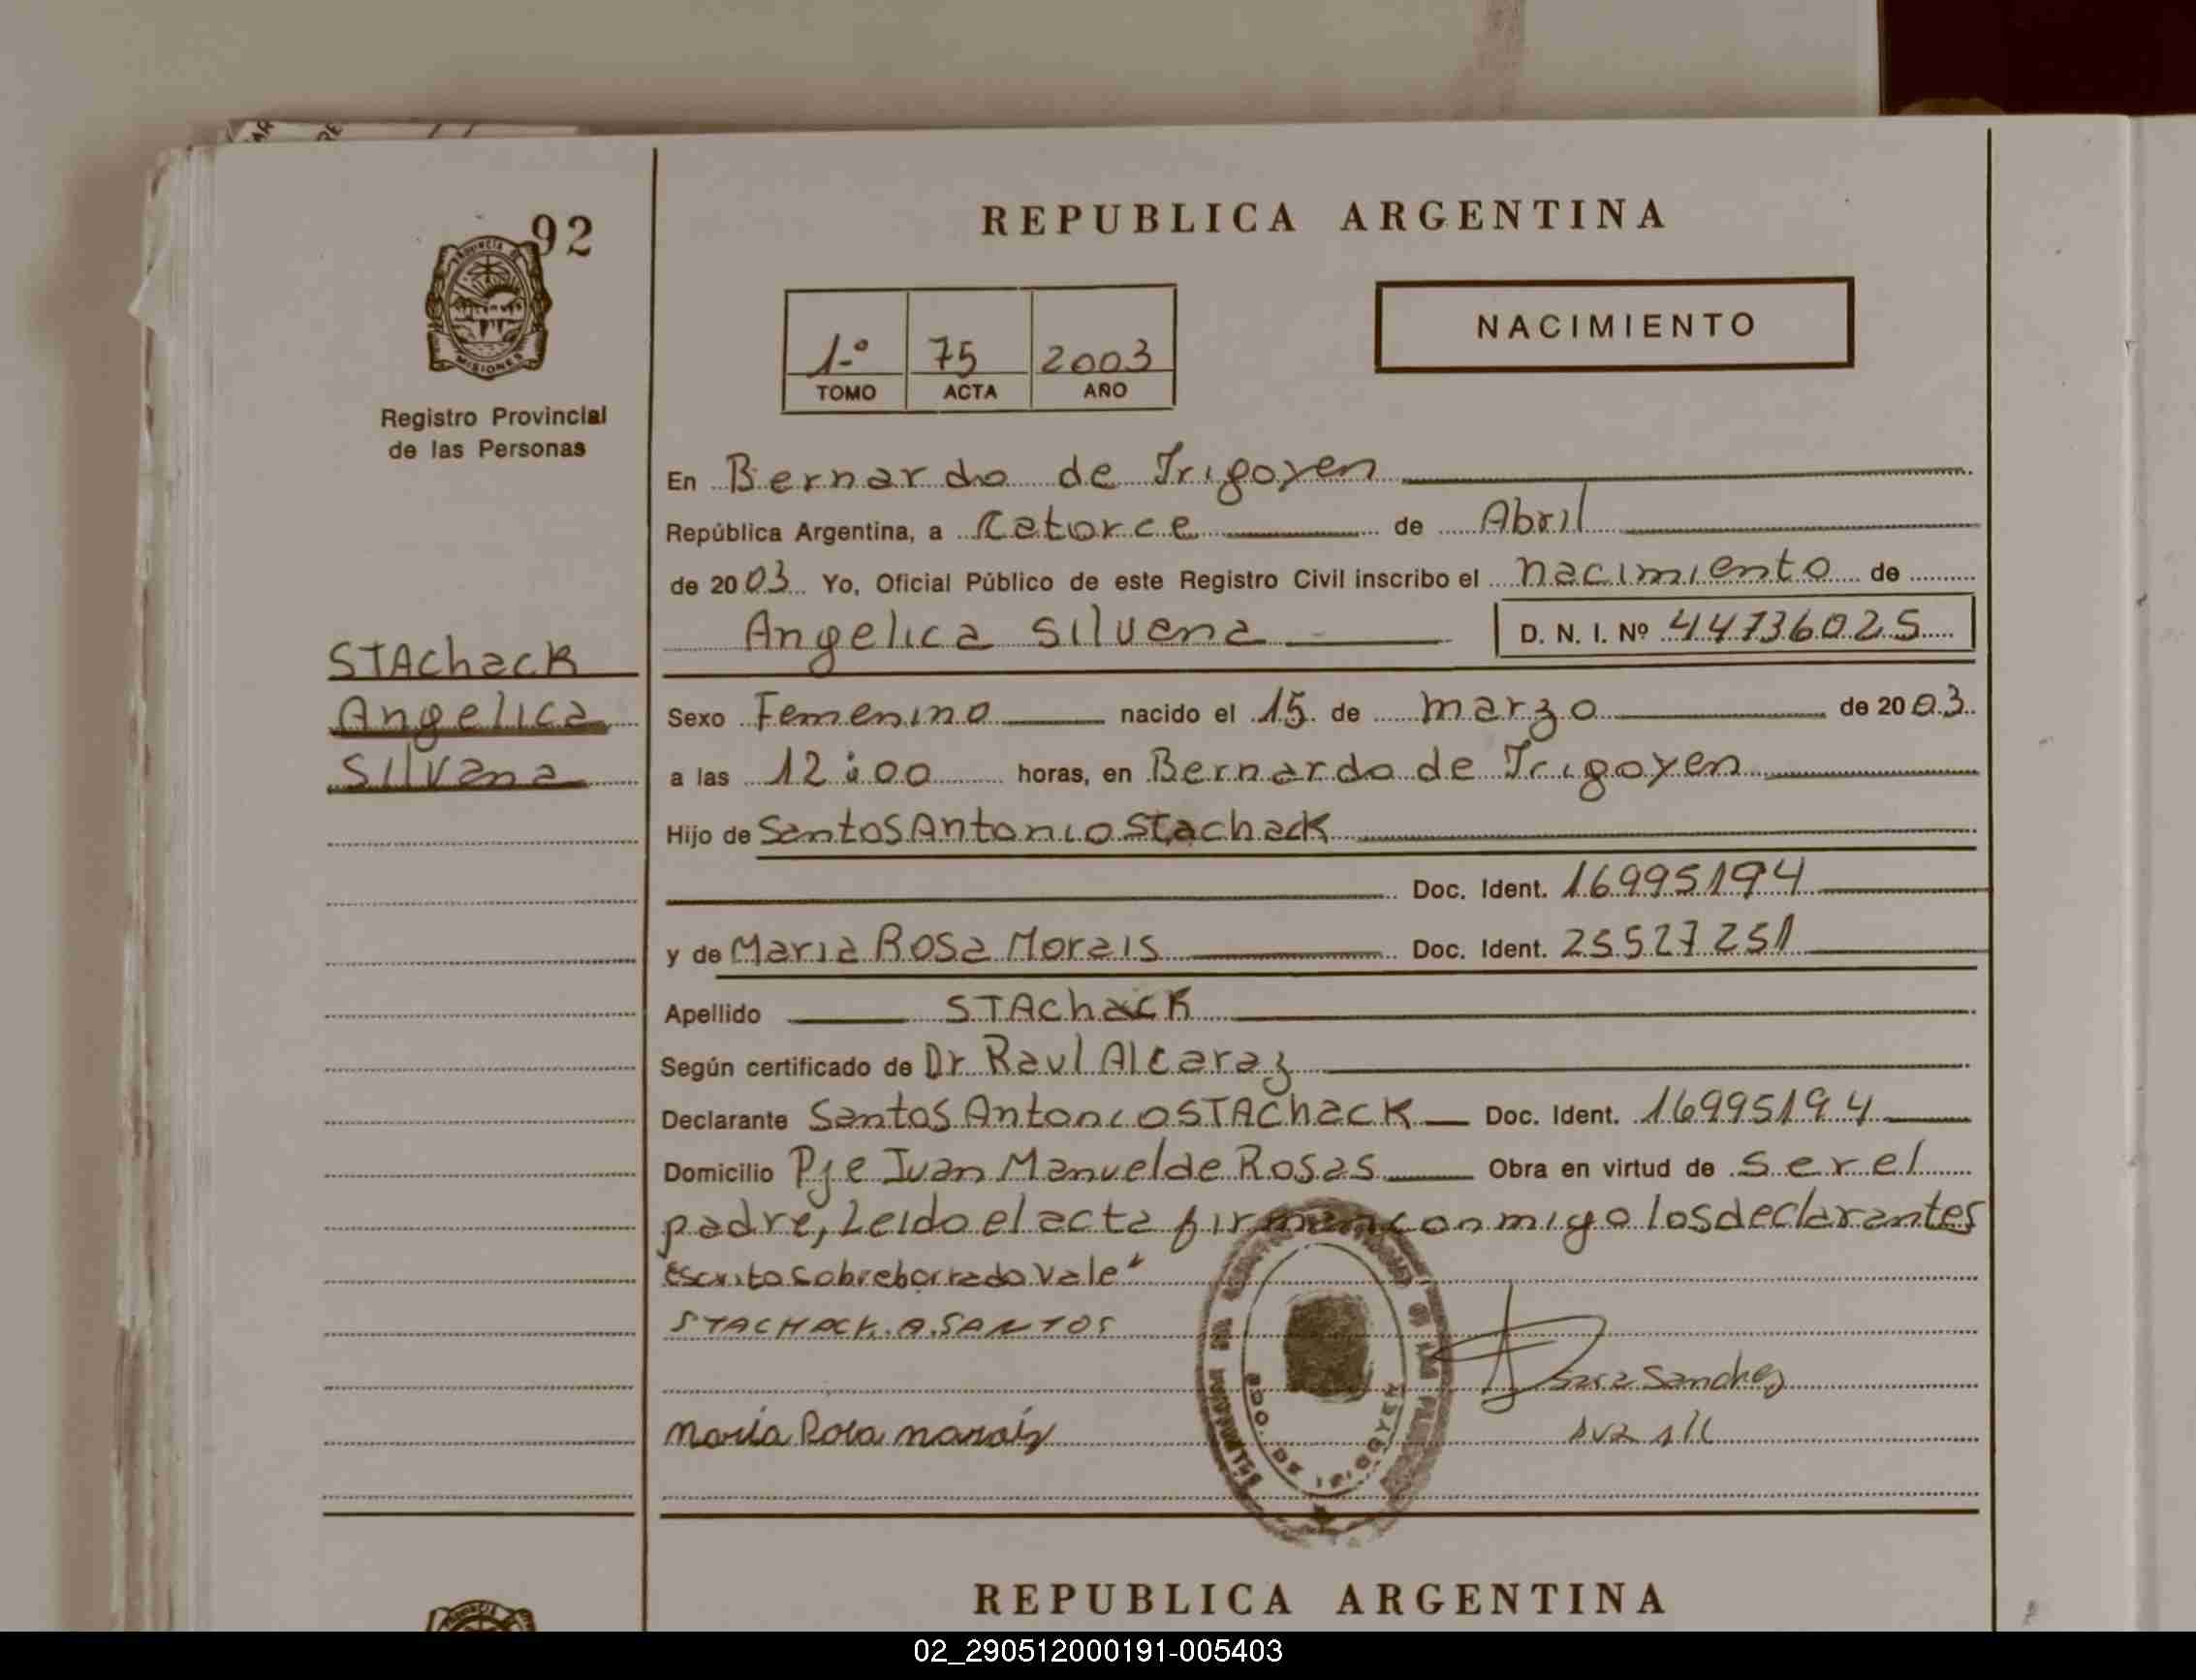 92
PROVINCIA DE
MISIONES
Registro Provincial
de las Personas
STAchacK
Angelica
Silvana
REPUBLICA ARGENTINA
1-º 75 2003
TOMO ACTA AÑO
NACIMIENTO
En Bernardo de Irigoyen
República Argentina, a Catorce de Abril
de 2003 Yo, Oficial Público de este Registro Civil inscribo el nacimiento de
Angelica Silvana D. N. I. Nº 44736025
Sexo Femenino nacido el 15 de marzo de 2003
a las 12:00 horas, en Bernardo de Irigoyen
Hijo de Santos Antonio Stachack
Doc. Ident. 16995194
y de Maria Rosa Morais Doc. Ident. 25527251
Apellido STAchacK
Según certificado de Dr Raul Alcaraz
Declarante Santos Antonio STAchacK Doc. Ident. 16995194
Domicilio Pje Juan Manuel de Rosas Obra en virtud de ser el
padre, Leido el acta firman conmigo los declarantes
escrito sobreborrado Vale"
STACHACK. A. SANTOS
Sara Sanchez
María Rosa morais
BDO. DE IRIGOYEN
REPUBLICA ARGENTINA
02_290512000191-005403